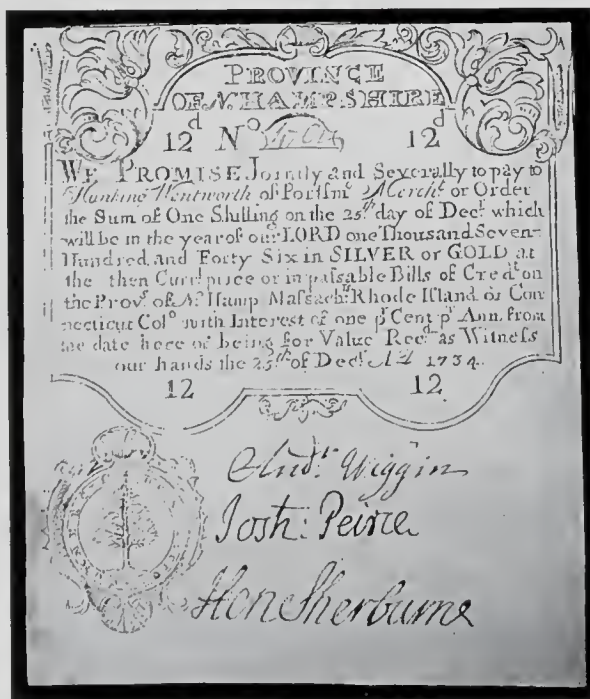 PROVINCE
OF N. HAMPSHIRE
12d No 12d
WE PROMISE Jointly and Severally to pay to
Hunking Wentworth of Portsmo Mercht or Order
the Sum of One Shilling on the 25th day of Decr which
will be in the year of our LORD one Thousand Seven
Hundred and Forty Six in SILVER or GOLD at
the then Currt price or in passable Bills of Credt on
the Provs of N. Hamp Massachts Rhode Island or Con
necticut Colo with Interest of one pr Cent pr Ann. from
the date here of being for Value Recd as Witness
our hands the 25th of Decr AD 1734.
12 12
Andr. Wiggin
Josh: Peirce
Hen Sherburne